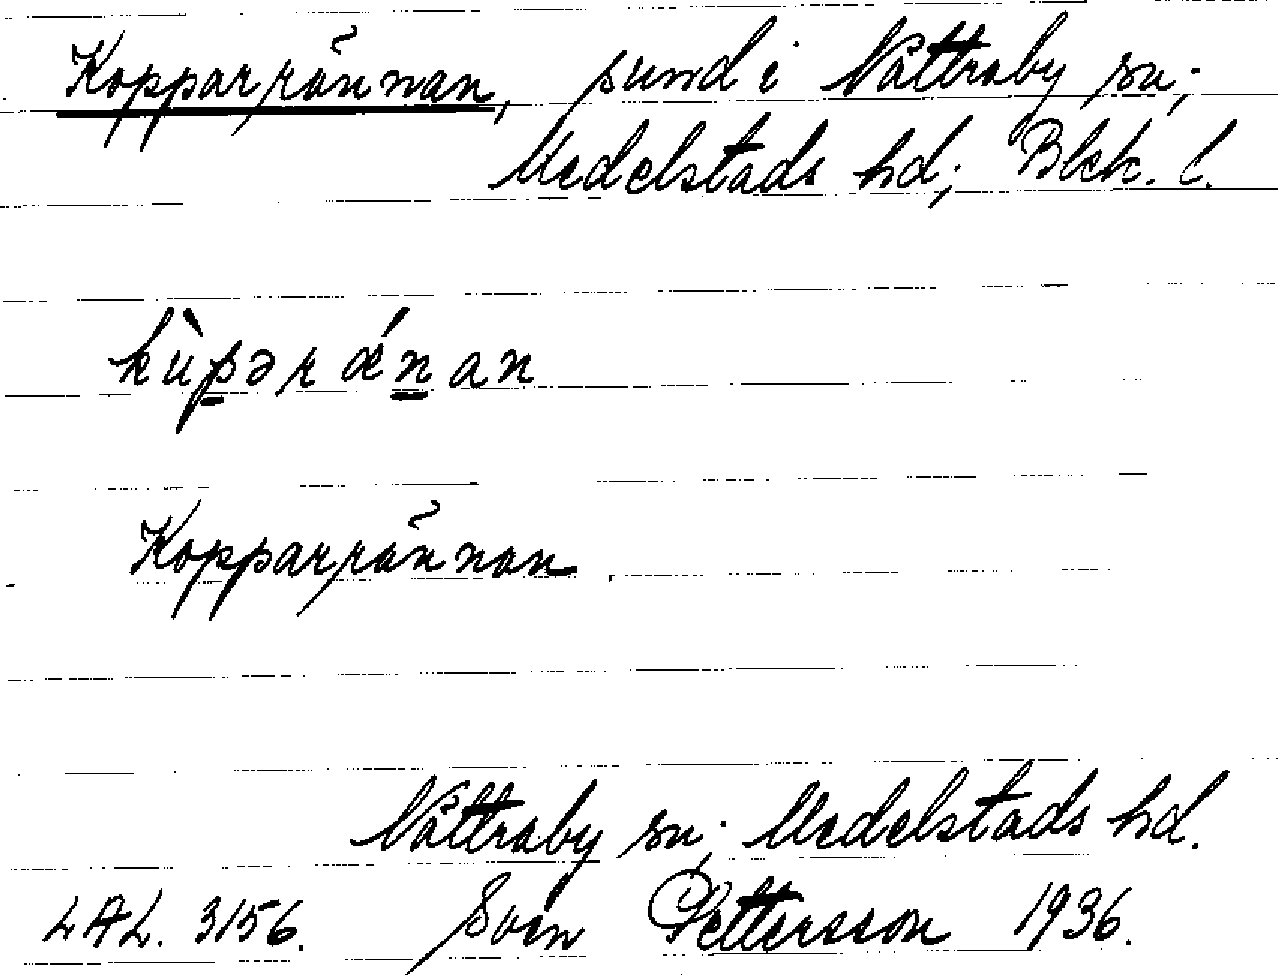 Kopparrännan, sund i Nättraby sn;
Medelstads hd; Blek. l.
kùpərǽnan
Kopparrännan
Nättraby sn; Medelstads hd.
LAL. 3156. Sven Pettersson 1936.